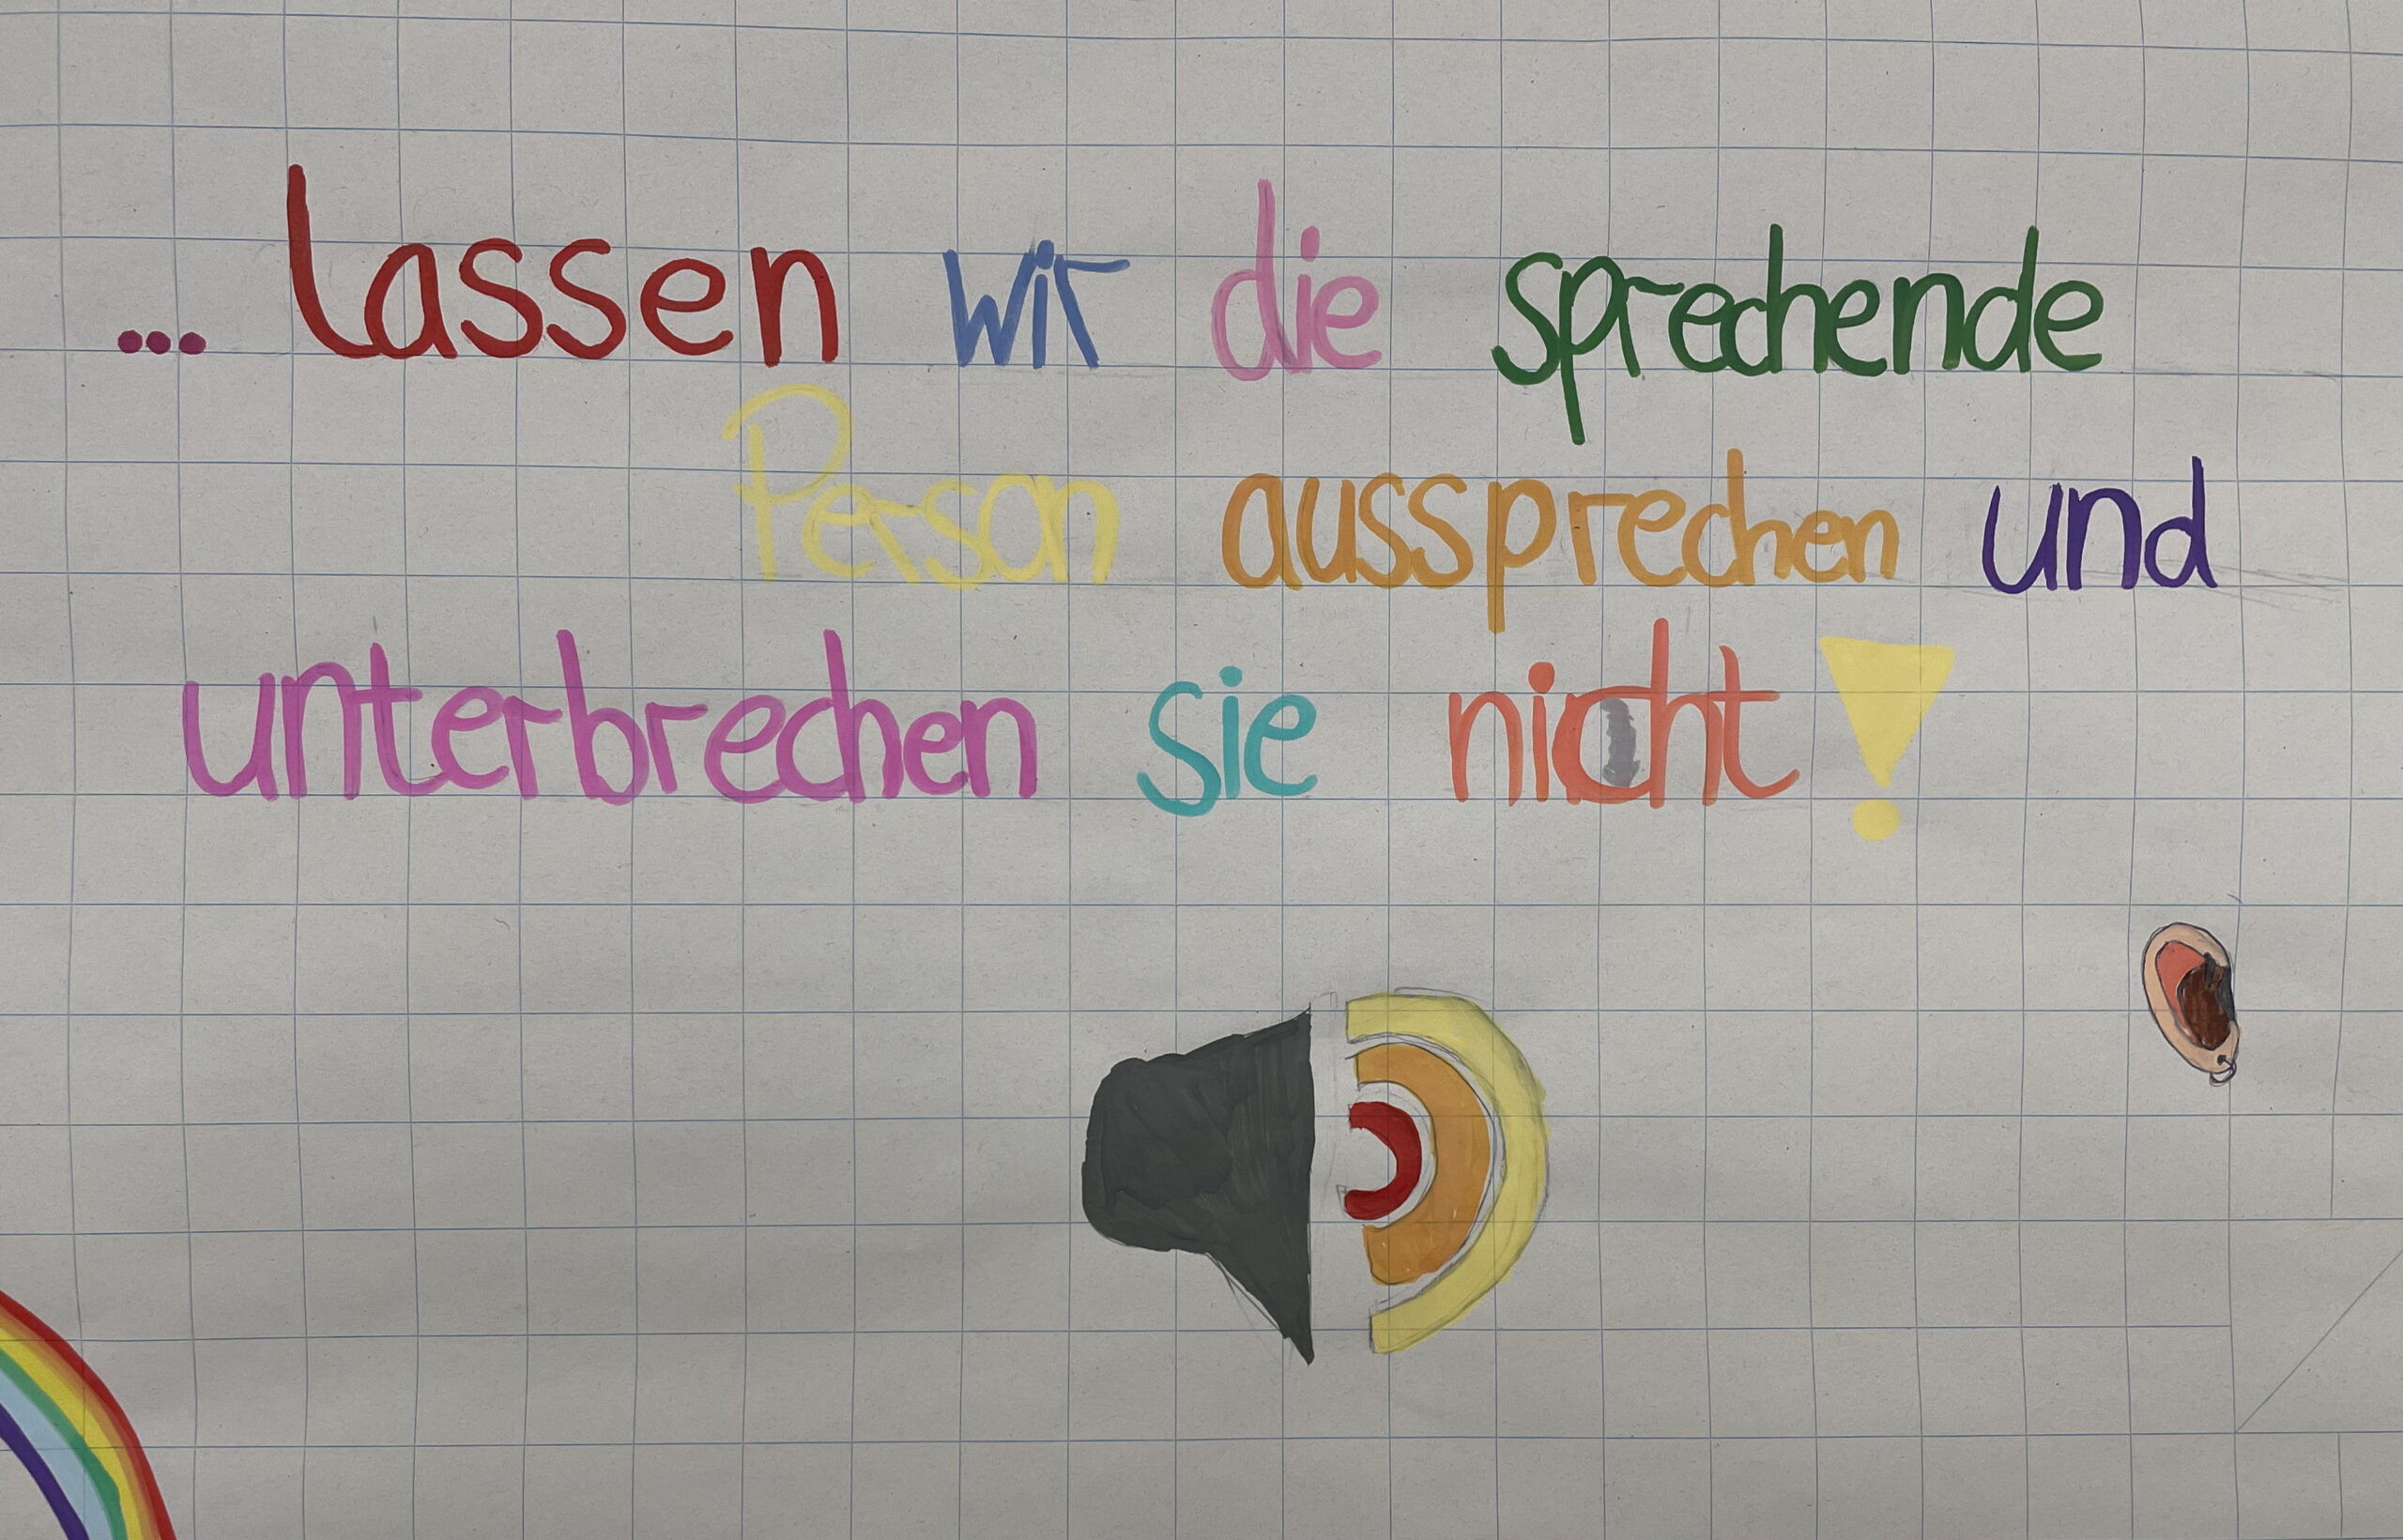 ... lassen wir die sprechende
Person aussprechen und
unterbrechen sie nicht!